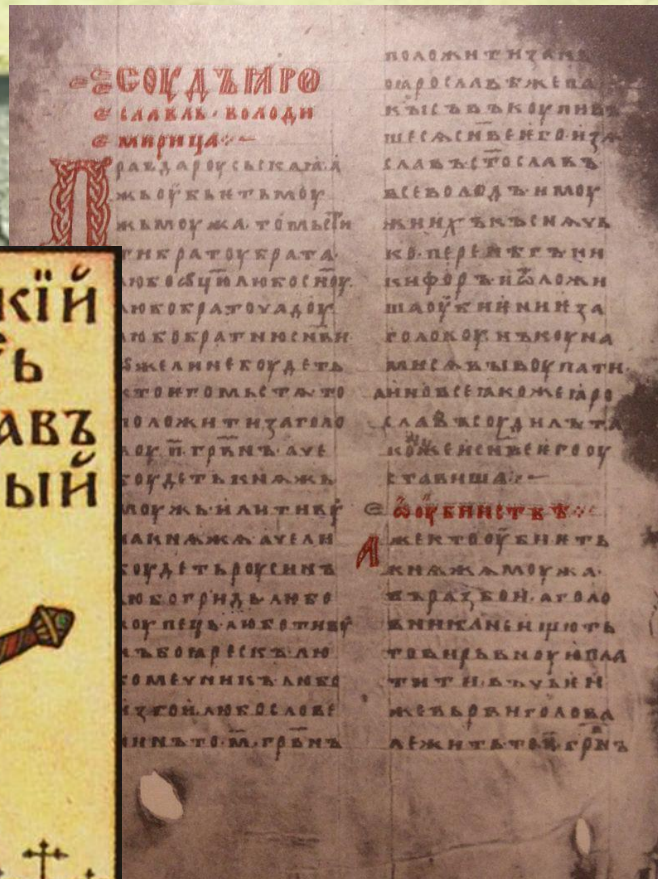 СОУДЪ ꙖРО
СЛАВЛЬ · ВОЛОДИ
МИРИЦА
Правда роусьскаꙗ · а
жь оубьѥть моу
жь моужа · то мьсти
ти братоу брата
любо ѡц҃ю любо сн҃оу
любо братоучадоу
любо братню сн҃ви
ѡже ли не боудеть
кто ѥго мьстѧ то
положити за голо
воу п҃ грв҃нъ · аче
боудеть кнѧжь
моужь · или тивоу
на кнѧжѧ аче ли
боудеть роусинъ
любо гридь · любо
коупець · любо тивоу
нъ боꙗрескъ · лю
бо мечникъ · любо
изгои · любо слове
нинъ то · м҃ · грв҃нъ
положити за нь
о ꙗрославѣ же па
кы съвъкоупивъ
шесѧ сн҃ве ѥго · изѧ
славъ ст҃ославъ
всеволодъ · и моу
жи ихъ · къснѧчь
ко · перенѣгъ · ни
кифоръ · и ѿложи
ша оубиѥниѥ за
головоу · нъ коуна
ми сѧ выкоупати ·
а ино все ꙗкоже ꙗро
славъ соудилъ та
коже и сн҃ве ѥго оу
ставиша
ѡ оубииствѣ
Аже кто оубиѥть
кнѧжѧ моужа ·
въ разбои · а голо
вника не ищють
то вирьвноую пла
тити · въ чьѥи
же вьрви голова
лежить то · п҃ · грв҃нъ
кїй
ь
авъ
ый